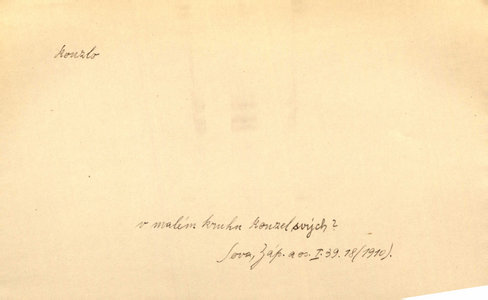 kouzlo
v malém kruhu kouzel svých?
Sova, Záp. a os. I. 39. 18 (1910).